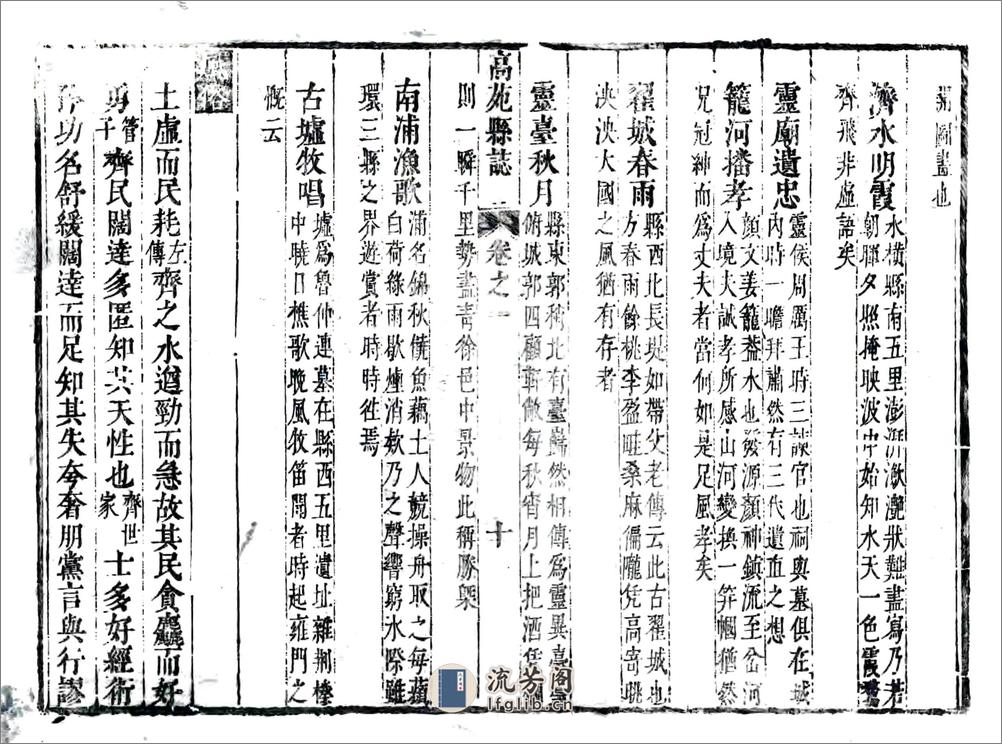 圖畫也
濟水明霞 水橫縣南五里澎湃潋灔狀難盡寫乃若
朝暉夕照掩映波中始知水天一色霞鶩
齊飛非虛語矣
靈廟遺忠 靈侯周厲王時三諫官也祠與墓俱在城
內時一瞻拜肅然有三代遺直之想
籠河播孝 顏文姜籠葢水也發源顏神鎮流至岔河
入境夫誠孝所感山河變換一笄幗猶然
况冠紳而爲丈夫者當何如是足風孝矣
翟城春雨 縣西北長堤如帶父老傳云此古翟城也
方春雨餘桃李盈畦桑麻徧隴凭高寄眺
泱泱大國之風猶有存者
靈臺秋月 縣東郭稍北有臺巋然相傳爲靈異
俯城郭四顧軒敞每秋宵月上把酒凭
則一瞬千里勢盡青徐邑中景物此稱勝槩
高苑縣誌 卷之一 十
南浦漁歌 浦名錦秋饒魚藕土人競操舟取之每蘋
白荷綠雨歇煙消欸乃之聲響窮水際雖
環三縣之界遊賞者時時徃焉
古墟牧唱 墟爲魯仲連墓在縣西五里遺址雜荆榛
中曉日樵歌晚風牧笛聞者時起雍門之
慨云
風俗
土虛而民耗 左傳 齊之水遒勁而急故其民貪麤而好
勇 管子 齊民闊達多匿知其天性也 齊世家 士多好經術
矜功名舒緩闊達而足知其失夸奢朋黨言與行謬
流芳阁
lfglib.cn